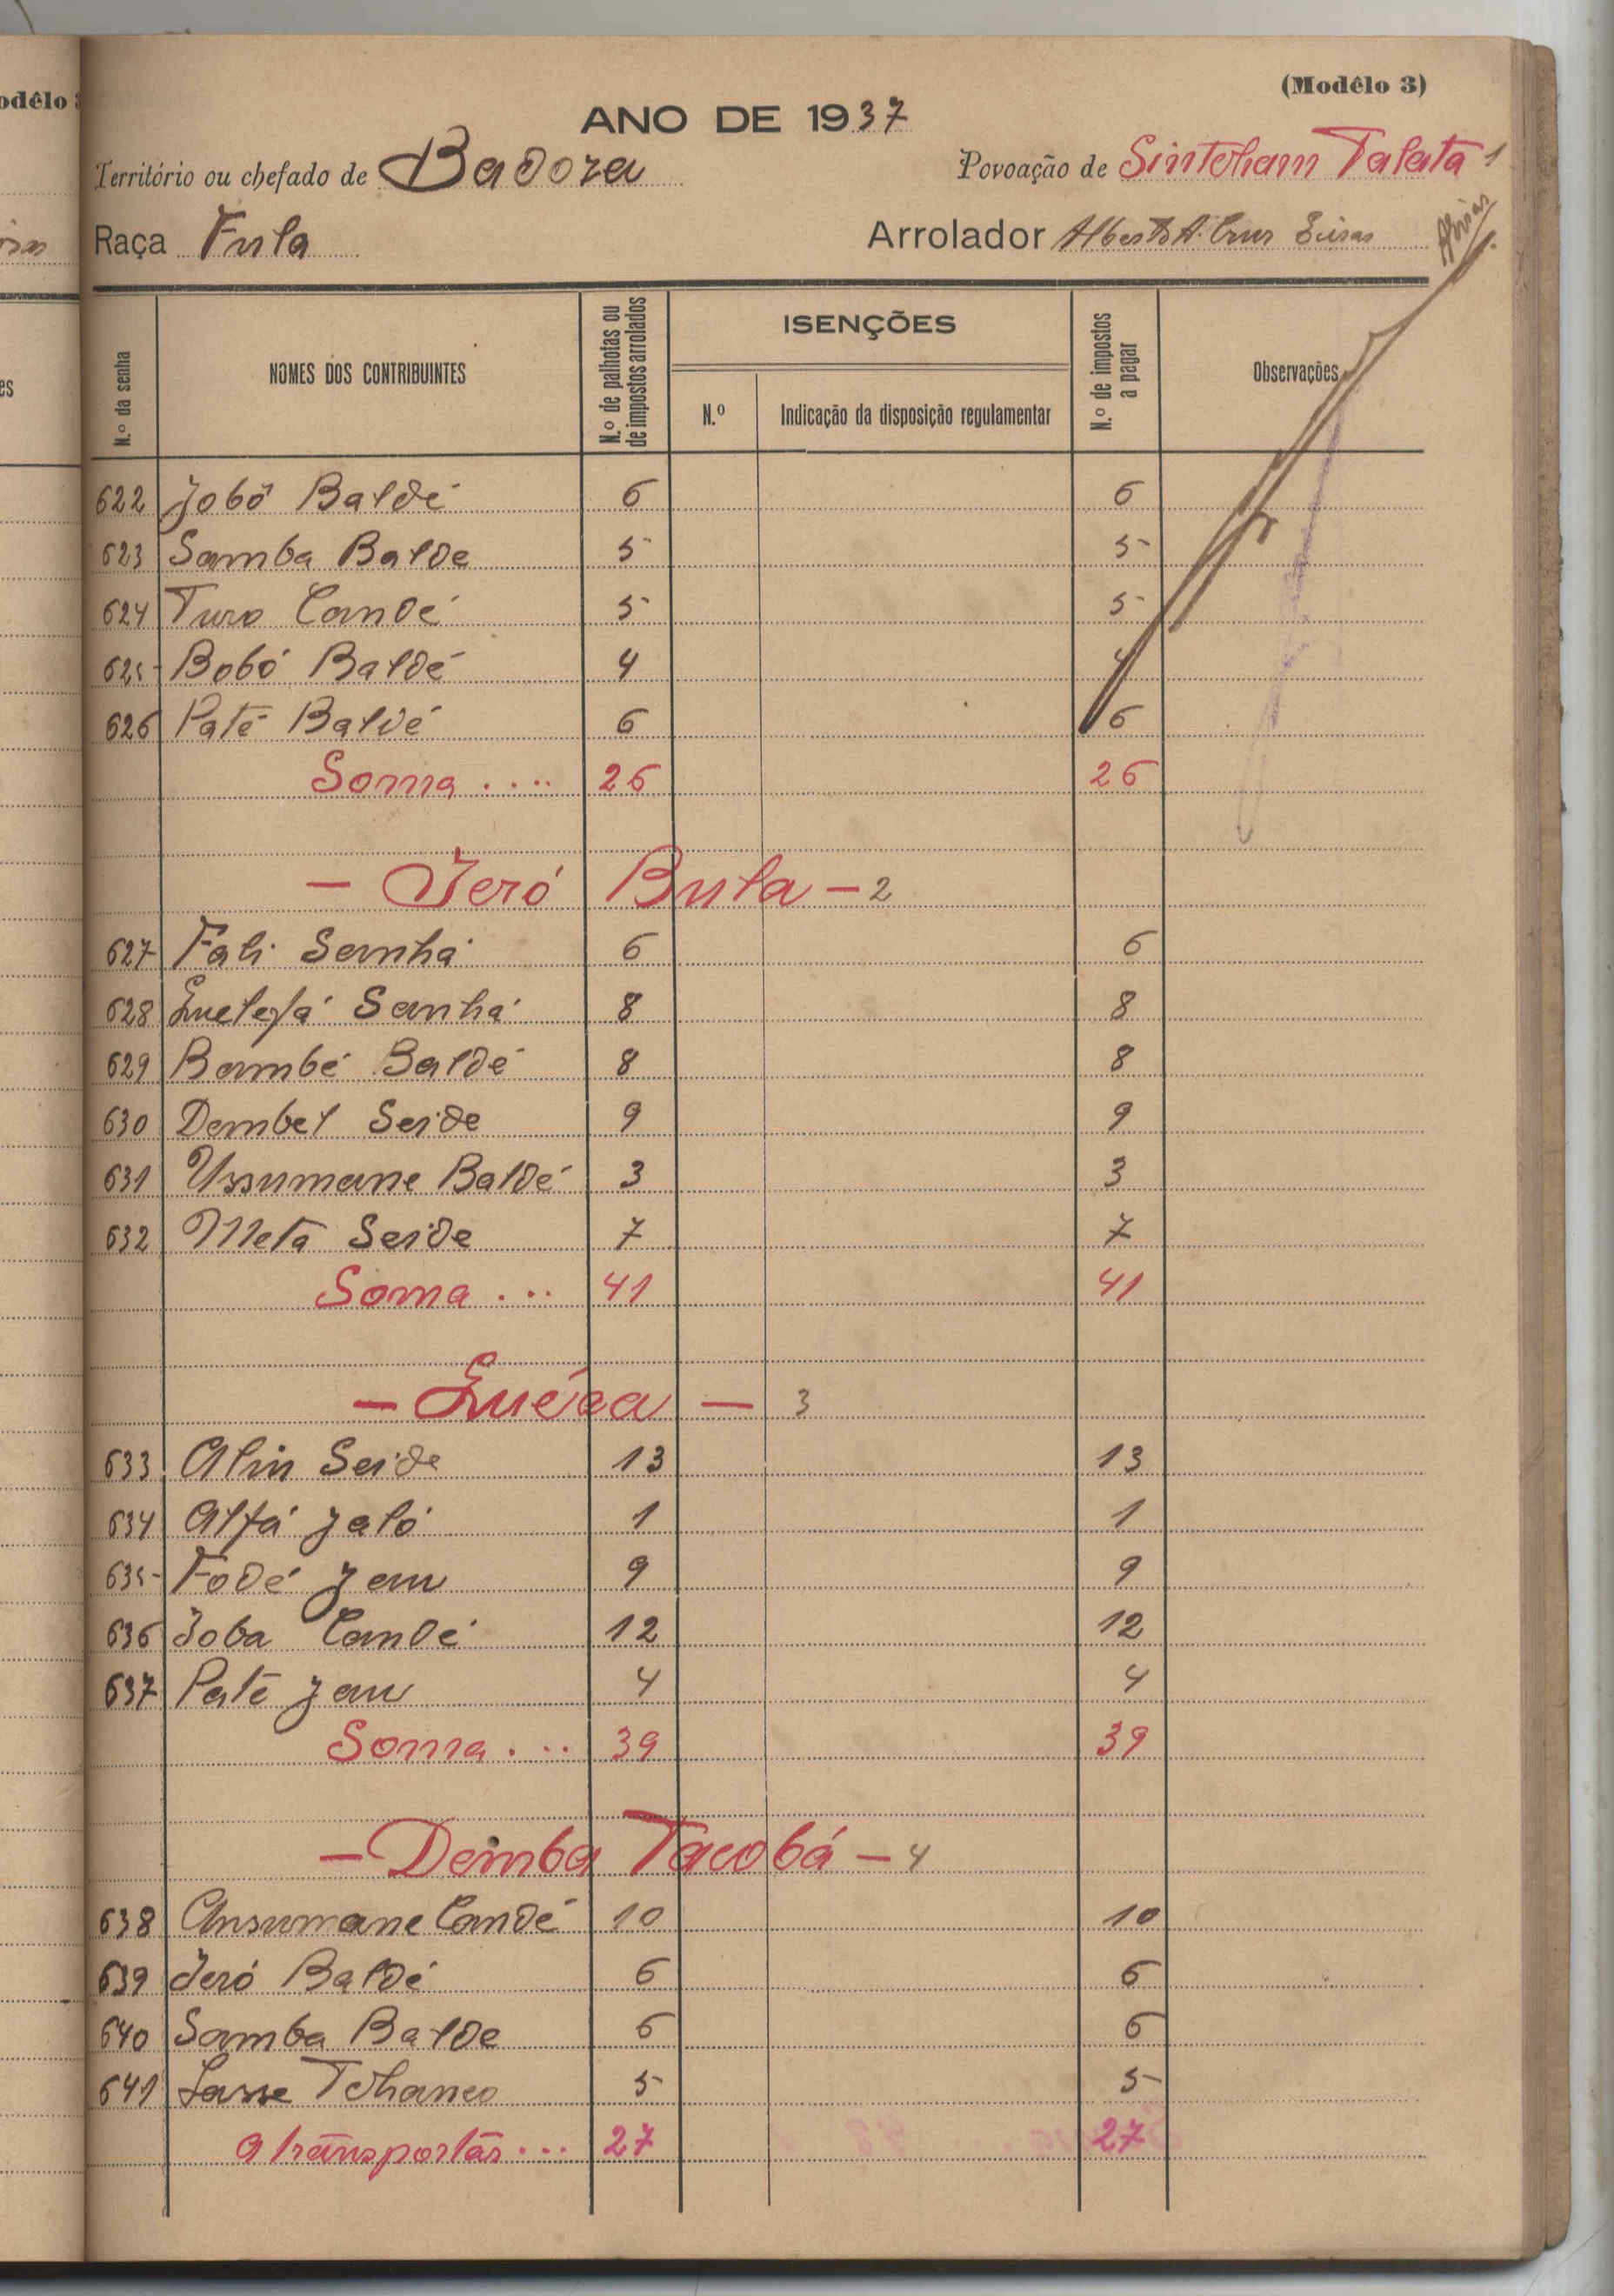 (Modêlo 3)
ANO DE 1937
Território ou chefado de Badora
Povoação de Sintcham Talata 1
Raça Fula
Arrolador Alberto A. Cruz
N.º da senha
NOMES DOS CONTRIBUINTES
N.º de palhotas ou de impostos arrolados
ISENÇÕES
N.º
Indicação da disposição regulamentar
N.º de impostos a pagar
Observações
622 Jobô Baldé 6 6
623 Samba Balde 5 5
624 Turo Candé 5 5
625 Bobó Baldé 4 4
626 Paté Baldé 6 6
Soma .... 26 26
— Jeró Bula — 2
627 Fali Sanhá 6 6
628 Quelefá Sanhá 8 8
629 Bambé Baldé 8 8
630 Dembel Seide 9 9
631 Ussumane Baldé 3 3
632 Meta Seide 7 7
Soma ... 41 41
— — 3
633 Alin Seide 13 13
634 Alfá Jaló 1 1
635 Fodé Jau 9 9
636 Joba Candé 12 12
637 Paté Jau 4 4
Soma ... 39 39
— Demba Tacobá — 4
638 Ansumane Candé 10 10
639 Jeró Baldé 6 6
640 Samba Balde 6 6
641 Sasse 5 5
a transportar ... 27 27
odêlo
es